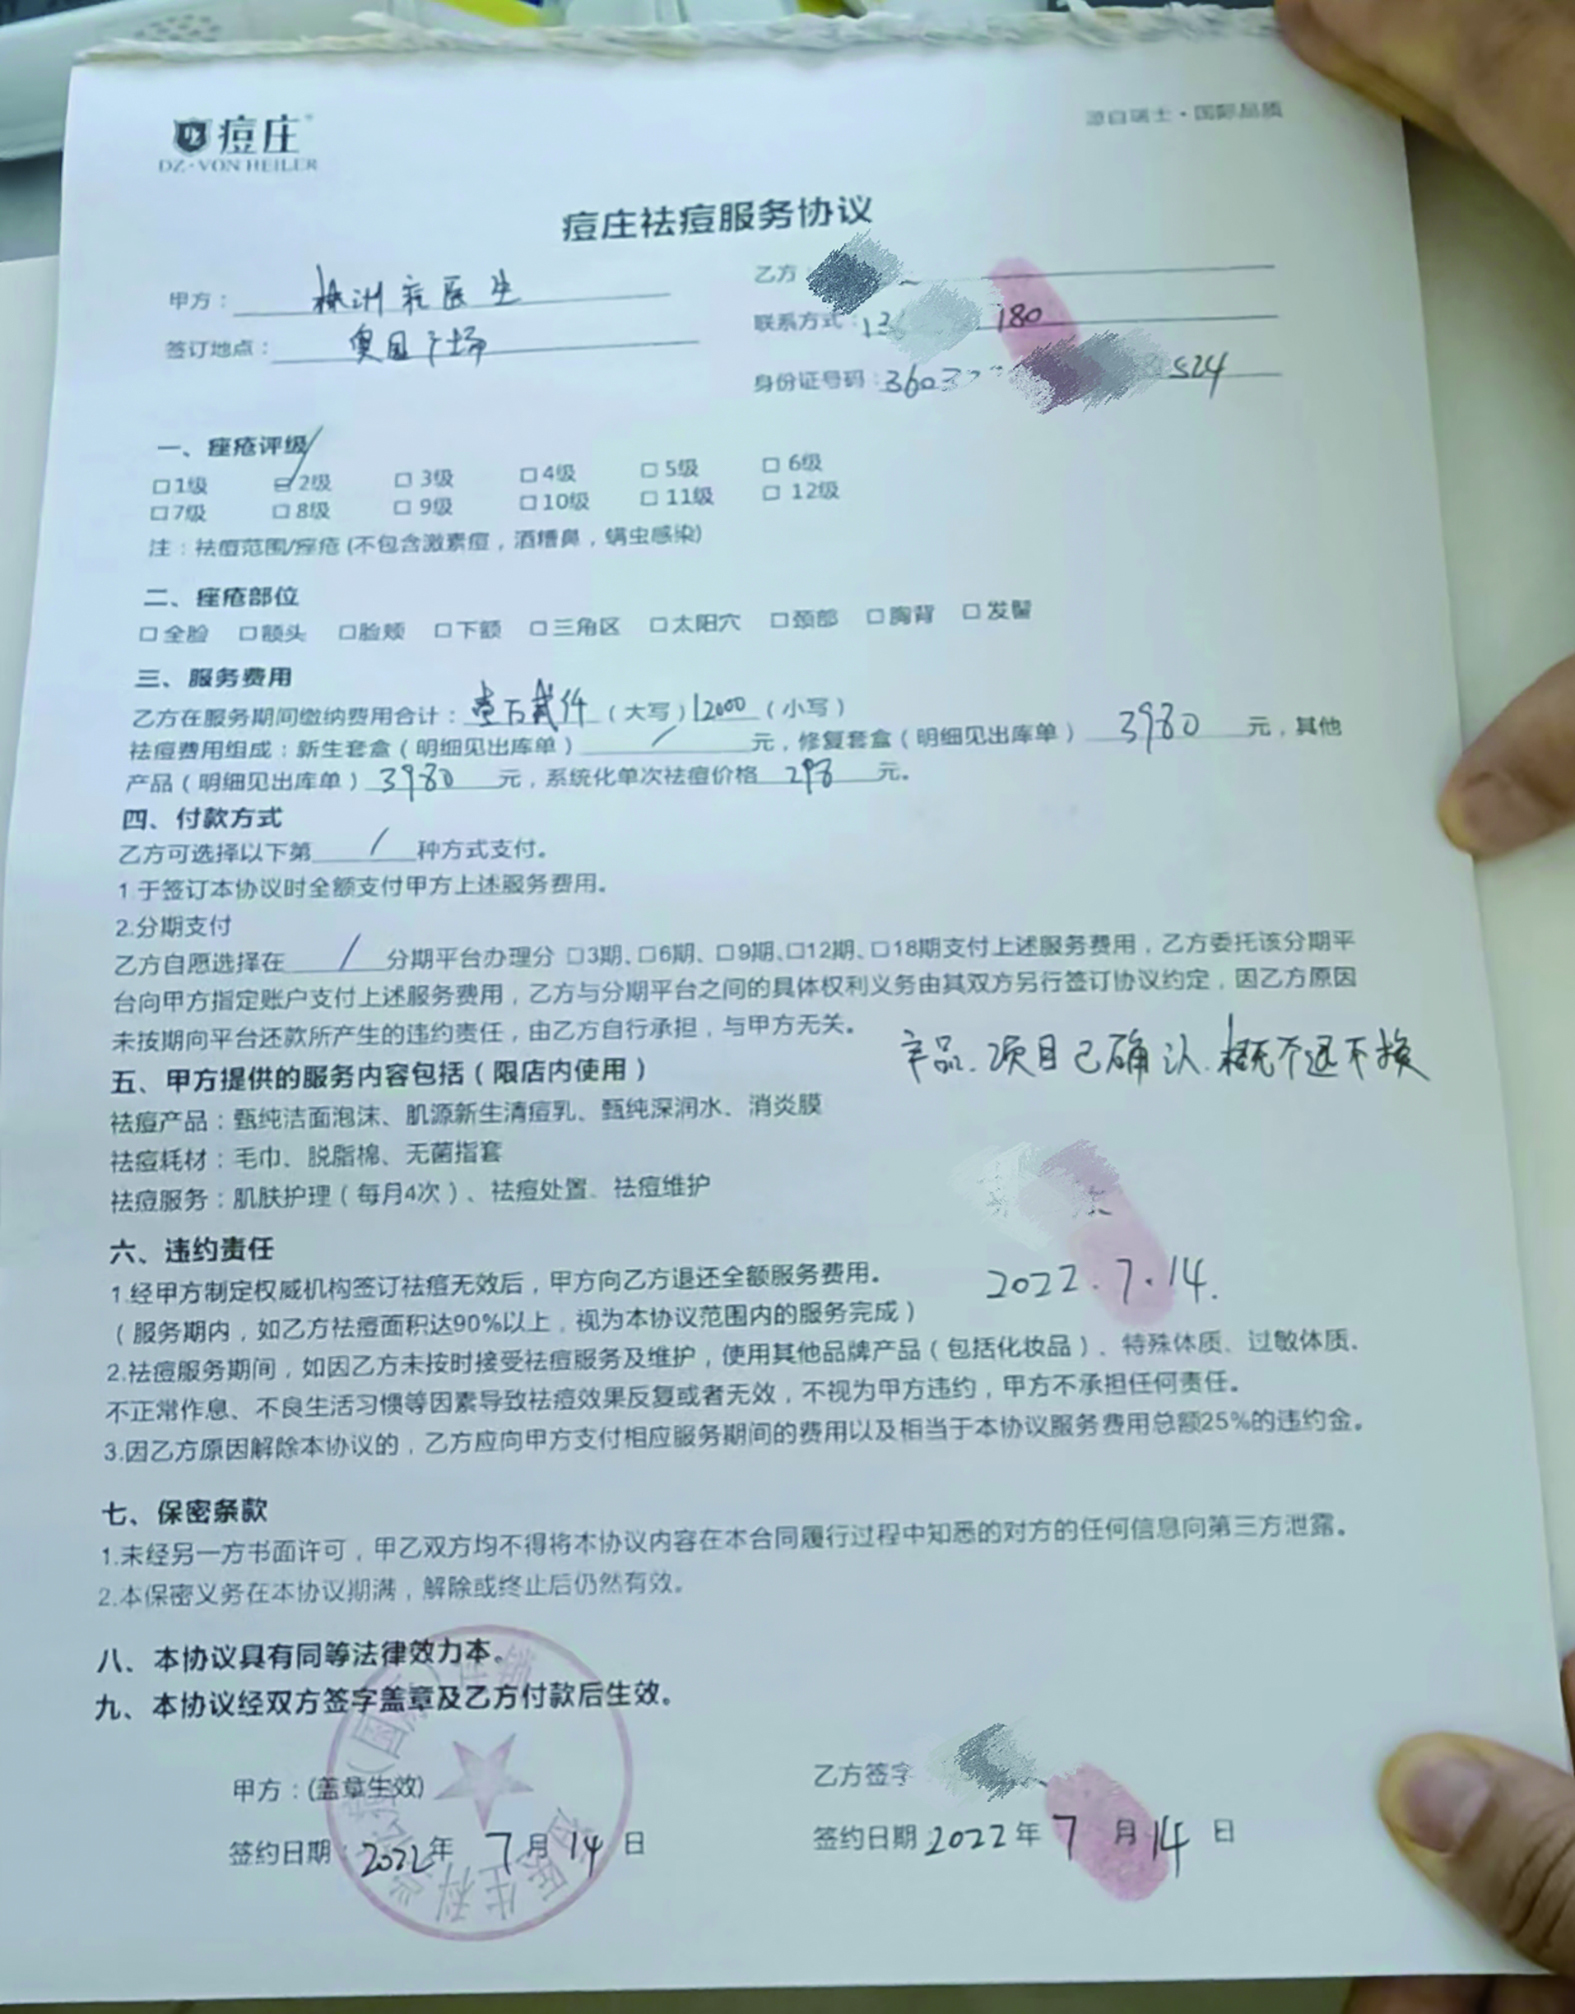 痘庄
DZ·VON HEILER
源自瑞士·国际品质
痘庄祛痘服务协议
甲方：株洲痘医生
签订地点：奥园广场
乙方：
联系方式：13 180
身份证号码：3603 524
一、痤疮评级
□1级 □2级 □3级 □4级 □5级 □6级
□7级 □8级 □9级 □10级 □11级 □12级
注：祛痘范围/痤疮(不包含激素痘，酒糟鼻，螨虫感染)
二、痤疮部位
□全脸 □额头 □脸颊 □下颌 □三角区 □太阳穴 □颈部 □胸背 □发鬓
三、服务费用
乙方在服务期间缴纳费用合计：壹万贰仟（大写）12000（小写）
祛痘费用组成：新生套盒（明细见出库单）/元，修复套盒（明细见出库单）3980元，其他
产品（明细见出库单）3980元，系统化单次祛痘价格298元。
四、付款方式
乙方可选择以下第/种方式支付。
1.于签订本协议时全额支付甲方上述服务费用。
2.分期支付
乙方自愿选择在/分期平台办理分□3期、□6期、□9期、□12期、□18期支付上述服务费用，乙方委托该分期平
台向甲方指定账户支付上述服务费用，乙方与分期平台之间的具体权利义务由其双方另行签订协议约定，因乙方原因
未按期向平台还款所产生的违约责任，由乙方自行承担，与甲方无关。
产品、项目已确认.概不退不换
五、甲方提供的服务内容包括（限店内使用）
祛痘产品：甄纯洁面泡沫、肌源新生清痘乳、甄纯深润水、消炎膜
祛痘耗材：毛巾、脱脂棉、无菌指套
祛痘服务：肌肤护理（每月4次）、祛痘处置、祛痘维护
2022.7.14.
六、违约责任
1.经甲方制定权威机构签订祛痘无效后，甲方向乙方退还全额服务费用。
（服务期内，如乙方祛痘面积达90%以上，视为本协议范围内的服务完成）
2.祛痘服务期间，如因乙方未按时接受祛痘服务及维护，使用其他品牌产品（包括化妆品）、特殊体质、过敏体质、
不正常作息、不良生活习惯等因素导致祛痘效果反复或者无效，不视为甲方违约，甲方不承担任何责任。
3.因乙方原因解除本协议的，乙方应向甲方支付相应服务期间的费用以及相当于本协议服务费用总额25%的违约金。
七、保密条款
1.未经另一方书面许可，甲乙双方均不得将本协议内容在本合同履行过程中知悉的对方的任何信息向第三方泄露。
2.本保密义务在本协议期满，解除或终止后仍然有效。
八、本协议具有同等法律效力本。
九、本协议经双方签字盖章及乙方付款后生效。
甲方：(盖章生效)
签约日期：2022年7月14日
乙方签字
签约日期：2022年7月14日